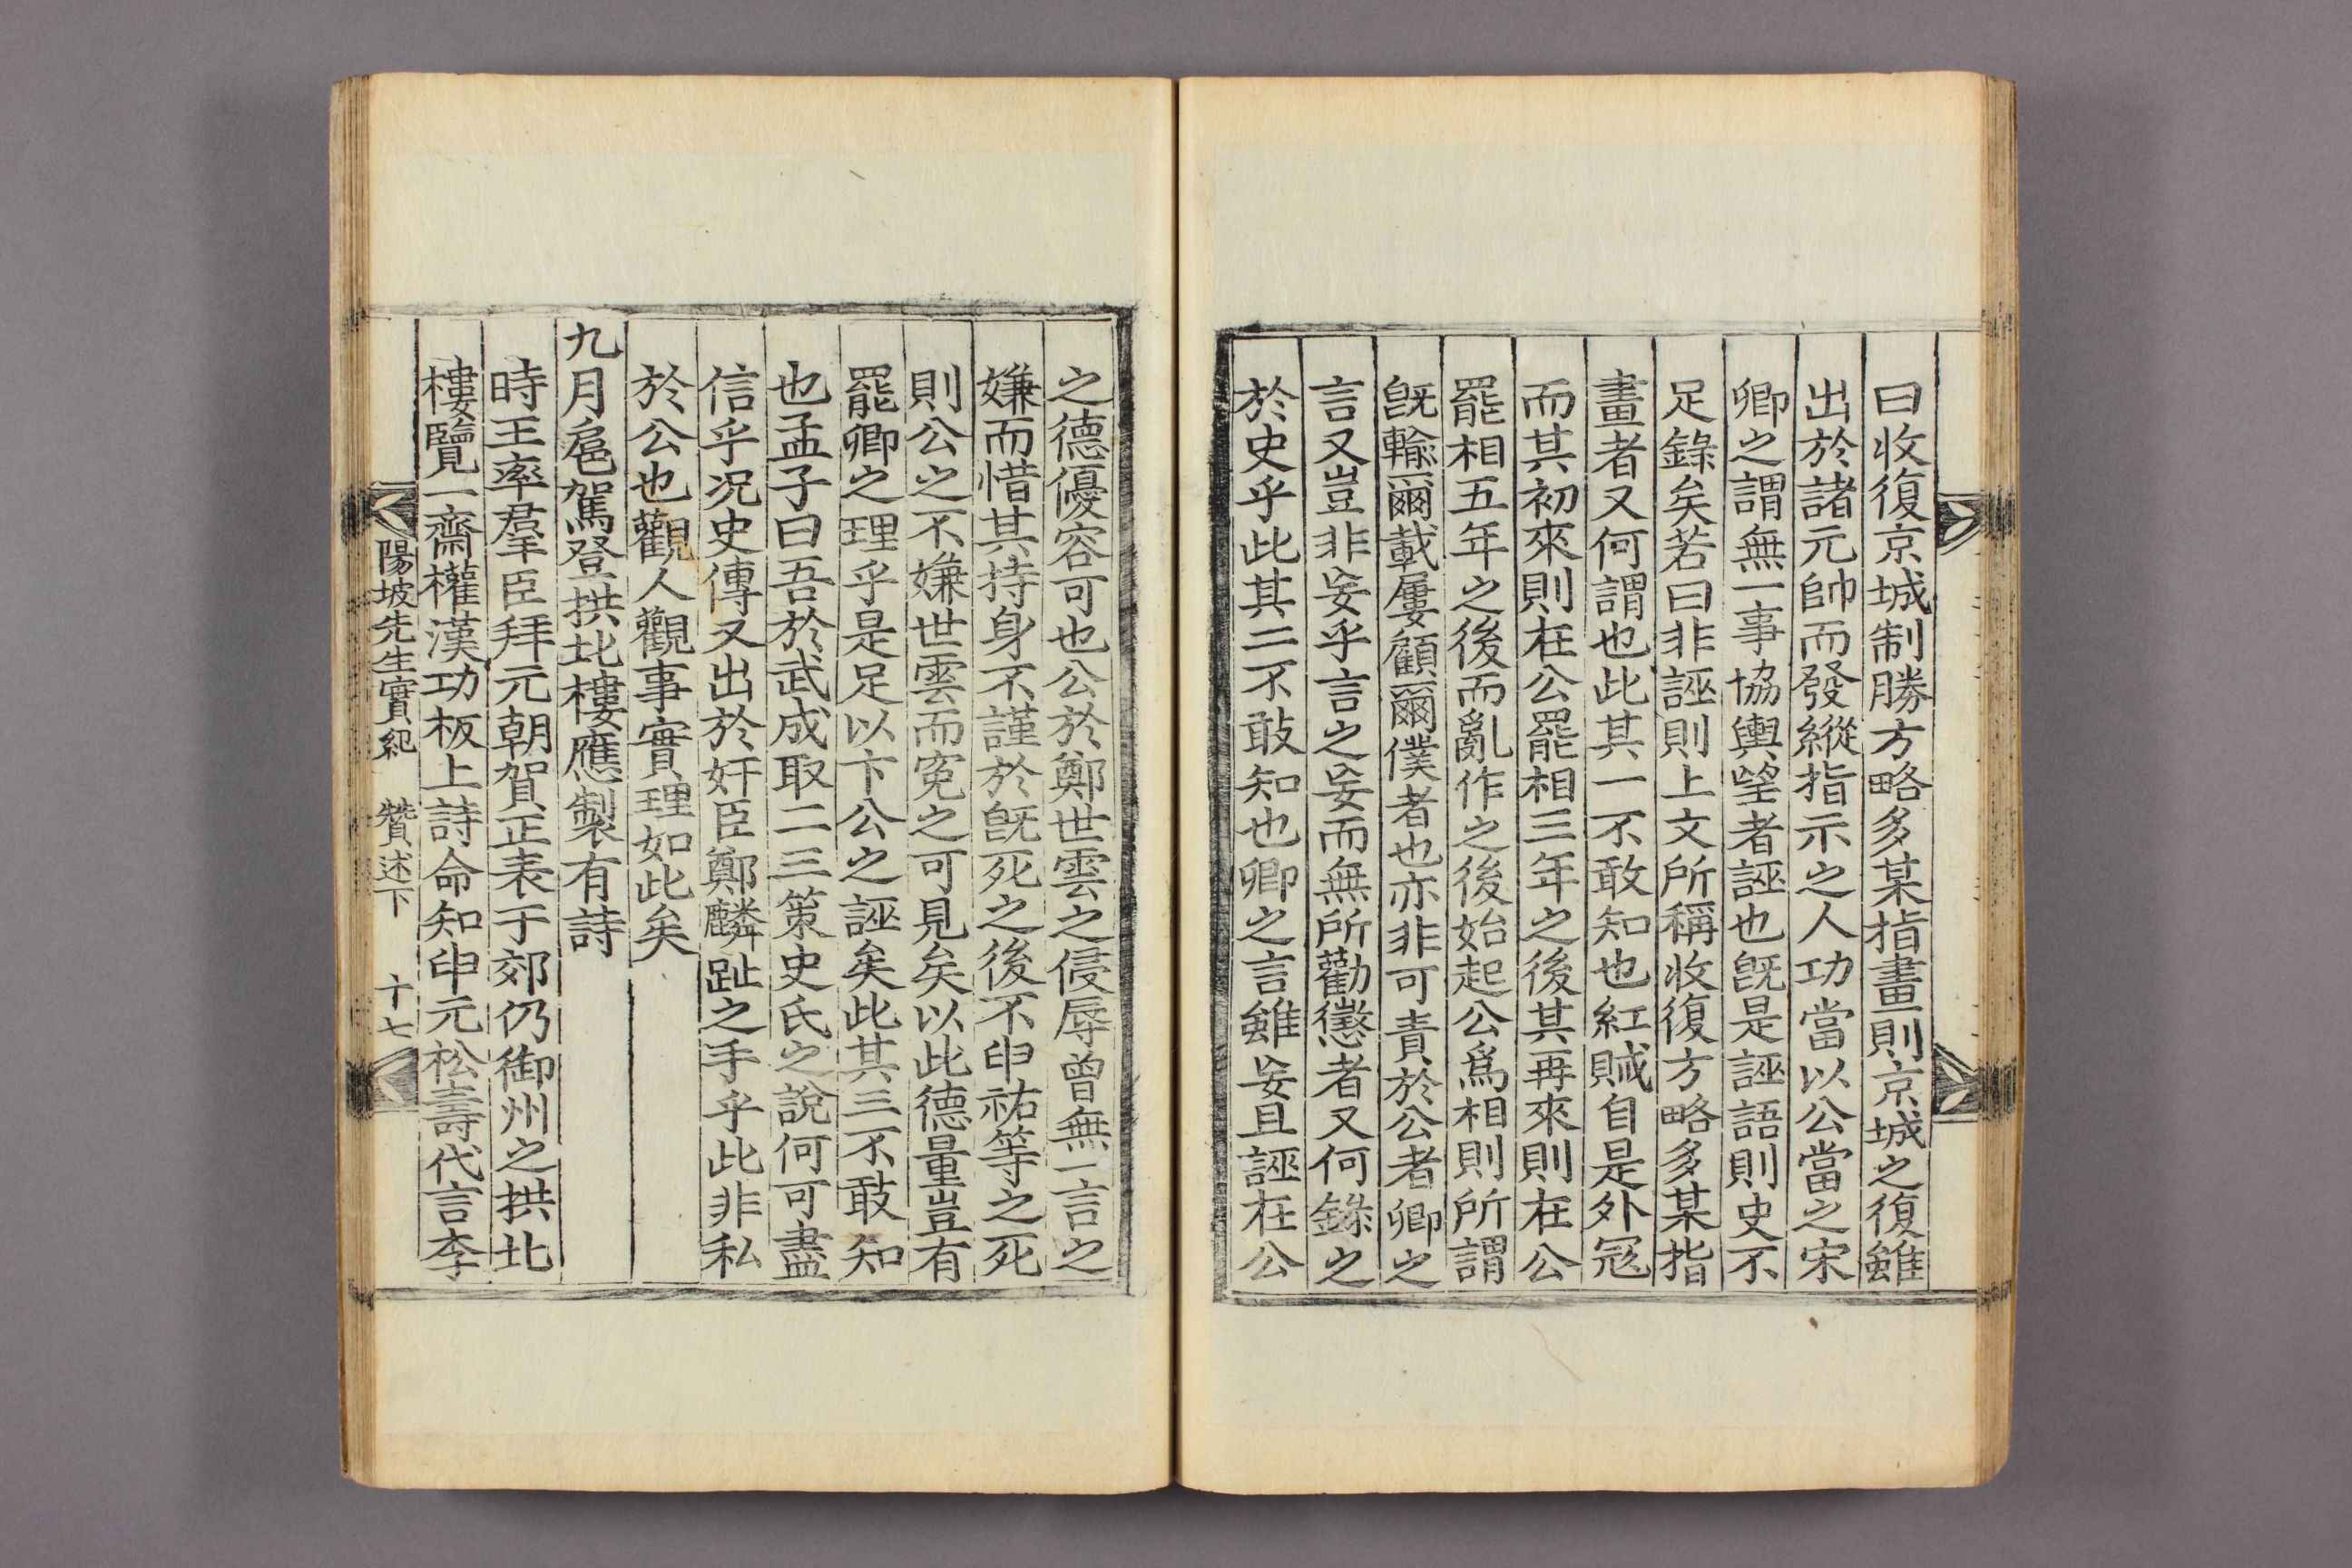 曰收復京城制勝方略多某指畫則京城之復雖
出於諸元帥而發縱指示之人功當以公當之宋
卿之謂無一事協輿望者誣也旣是誣語則史不
足錄矣若曰非誣則上文所稱收復方略多某指
畫者又何謂也此其一不敢知也紅賊自是外冦
而其初來則在公罷相三年之後其再來則在公
罷相五年之後而亂作之後始起公爲相則所謂
旣輸爾載屢顧爾僕者也亦非可責於公者卿之
言又豈非妄乎言之妄而無所勸懲者又何錄之
於史乎此其二不敢知也卿之言雖妄且誣在公
之德優容可也公於鄭世雲之侵辱曾無一言之
嫌而惜其持身不謹於旣死之後不申祐等之死
則公之不嫌世雲而寃之可見矣以此德量豈有
罷卿之理乎是足以卞公之誣矣此其三不敢知
也孟子曰吾於武成取二三策史氏之說何可盡
信乎况史傳又出於奸臣鄭麟趾之手乎此非私
於公也觀人觀事實理如此矣
九月扈駕登拱北樓應製有詩
時王率羣臣拜元朝賀正表于郊仍御州之拱北
樓覽一齋權漢功板上詩命知申元松壽代言李
陽坡先生實紀 贊述下 十七